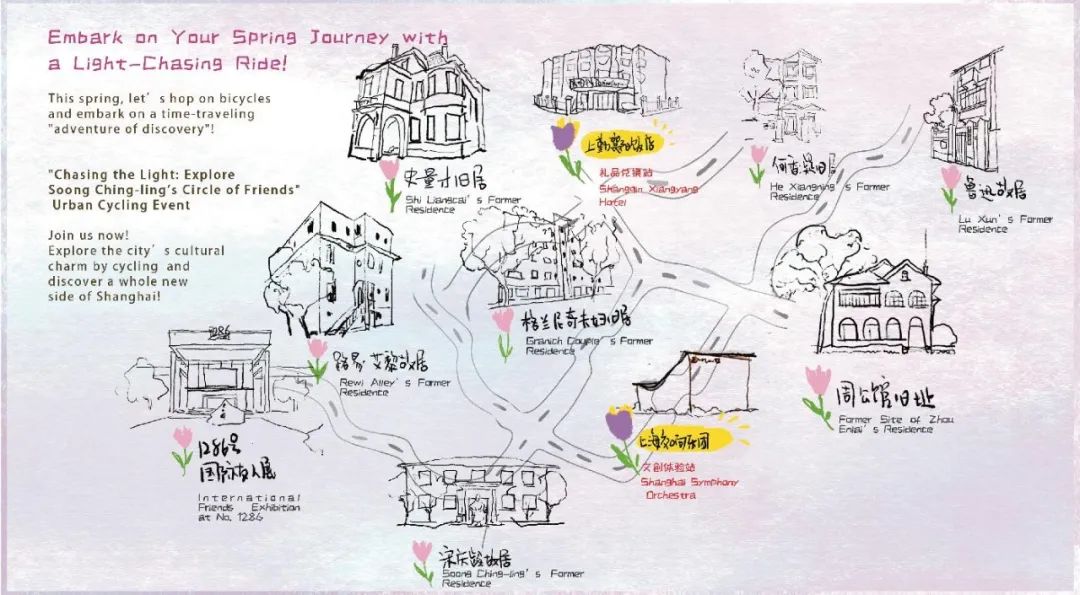 Embark on Your Spring Journey with
a Light-Chasing Ride!
This spring, let's hop on bicycles
and embark on a time-traveling
"adventure of discovery"!
"Chasing the Light: Explore
Soong Ching-ling's Circle of Friends"
Urban Cycling Event
Join us now!
Explore the city's cultural
charm by cycling and
discover a whole new
side of Shanghai!
史量才旧居
Shi Liangcai's Former
Residence
礼品兑换站
Shangqin Xiangyang
Hotel
何香凝旧居
He Xiangning's Former
Residence
鲁迅故居
Lu Xun's Former
Residence
路易·艾黎故居
Rewi Alley's Former
Residence
格兰尼奇夫妇旧居
Granich Couple's Former
Residence
周公馆旧址
Former Site of Zhou
Enlai's Residence
上海交响乐团
文创体验站
Shanghai Symphony
Orchestra
1286
1286号
国际友人展
International
Friends Exhibition
at No. 1286
宋庆龄故居
Soong Ching-ling's Former
Residence